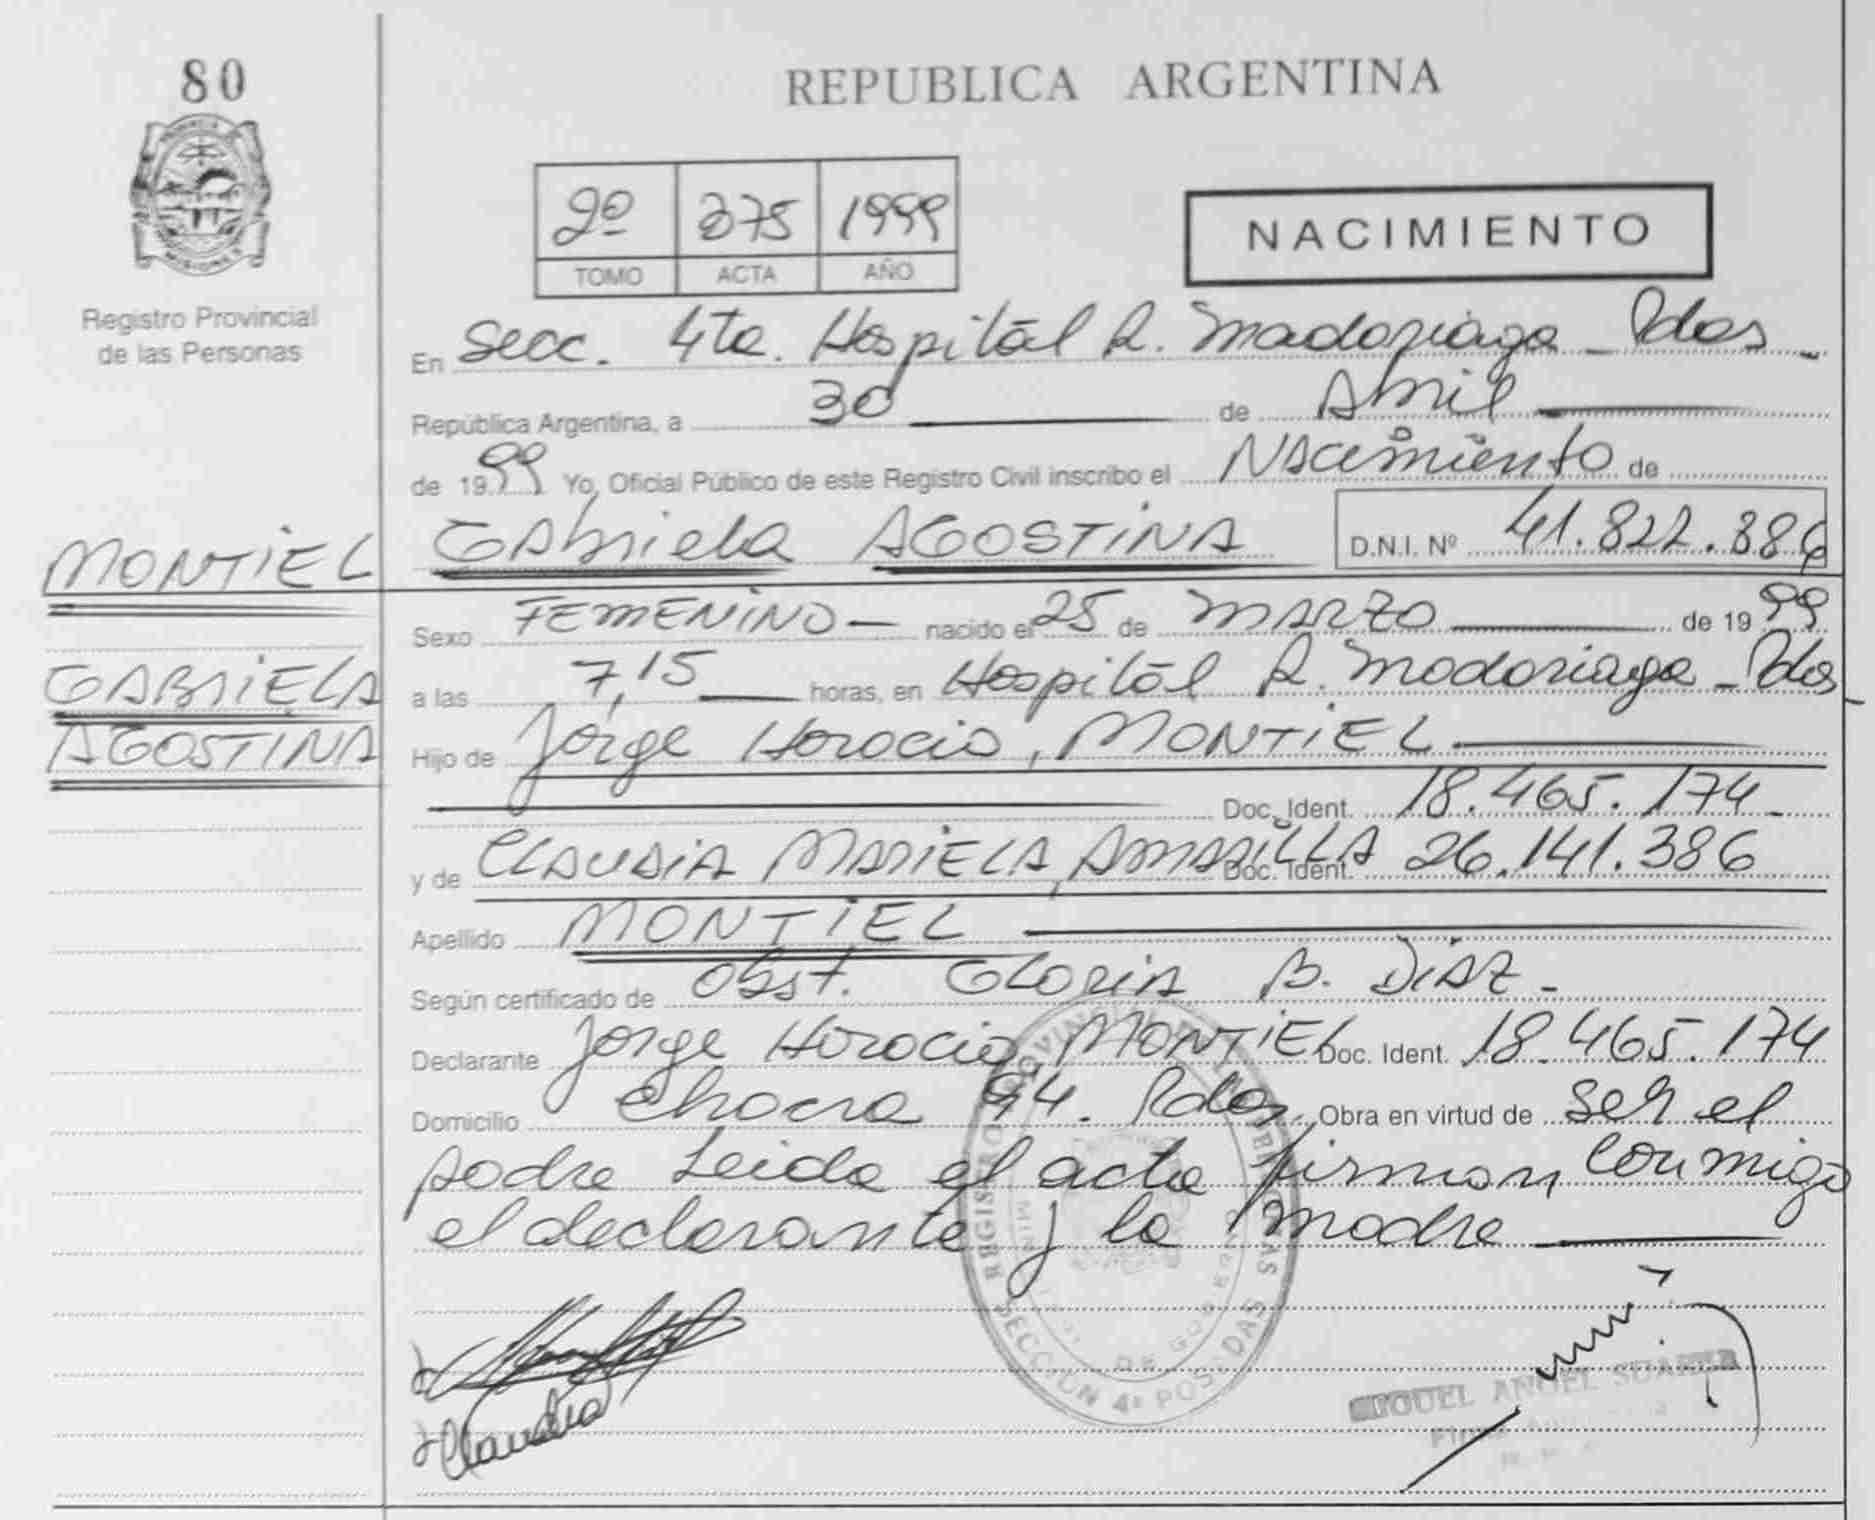 80
REPUBLICA ARGENTINA
PROVINCIA DE
MISIONES
Registro Provincial
de las Personas
2º 375 1999
TOMO ACTA AÑO
NACIMIENTO
En Secc. 4ta. Hospital R. Madariaga - Pdas -
República Argentina, a 30 de Abril
de 1999 Yo, Oficial Público de este Registro Civil inscribo el Nacimiento de
MONTIEL Gabriela AGOSTINA D.N.I. Nº 41.822.886
Sexo FEMENINO - nacido el 25 de MARZO de 1999
GABRIELA a las 7,15 horas, en Hospital R. Madariaga - Pdas -
AGOSTINA Hijo de Jorge Horacio, MONTIEL
Doc. Ident. 18.465.174 -
y de CLAUDIA MARIELA, AMARILLA Doc. Ident. 26.141.386
Apellido MONTIEL
Según certificado de Obst. GLORIA B. DIAZ -
Declarante Jorge Horacio MONTIEL Doc. Ident. 18.465.174
Domicilio Chacra 94. Pdas. Obra en virtud de ser el
padre Leida el acta firman conmigo
el declarante y la madre
REGISTRO PROVINCIAL DE LAS PERSONAS
MINISTERIO DE GOBIERNO
SECCION 4ª POSADAS
Claudia
MIGUEL ANGEL SUAREZ